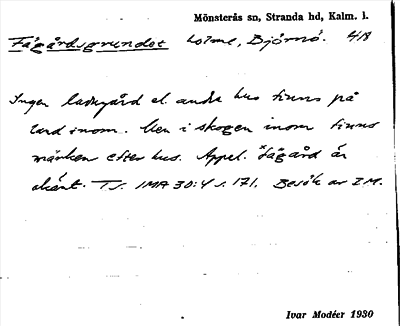 Mönsterås sn, Stranda hd, Kalm. l.
Fägårdsgrundet holme, Björnö. 418
Ingen ladugård el. andra hus finns på
land inom. Men i skogen inom finns
märken efter hus. Appel. *fägård är
okänt. T.S. IMA 30:4 s. 171. Besök av I.M.
Ivar Modéer 1930